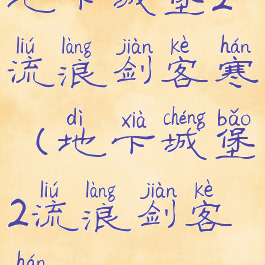 地下城堡2
liú làng jiàn kè hán
流浪剑客寒
dì xià chéng bǎo
(地下城堡
liú làng jiàn kè
2流浪剑客
hán